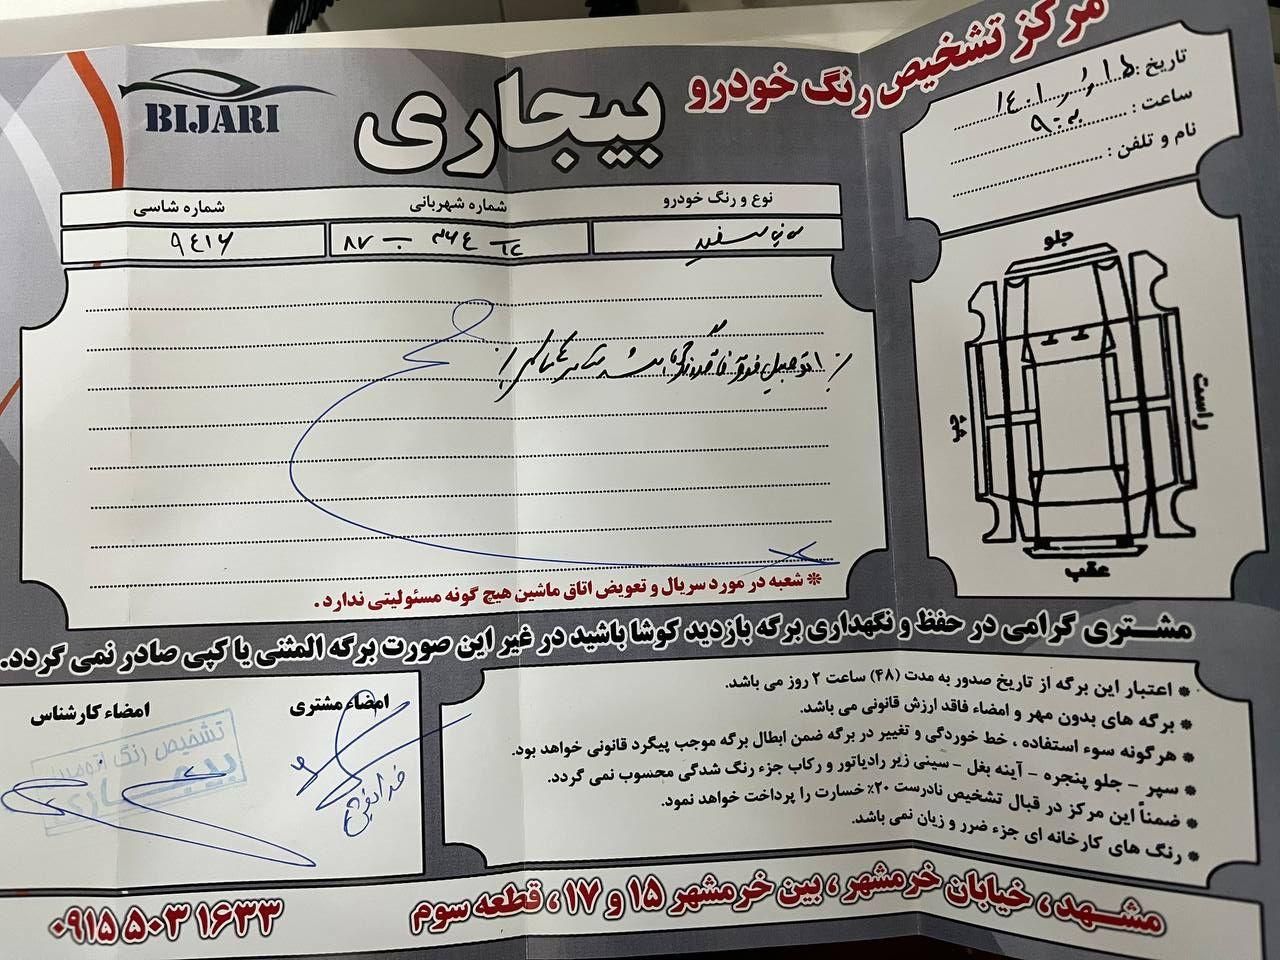 مرکز تشخیص رنگ خودرو
بیجاری
BIJARI
تاریخ :
ساعت :
نام و تلفن :
نوع و رنگ خودرو
شماره شهربانی
شماره شاسی
سفید
۹۴۱۶
جلو
راست
چپ
عقب
* شعبه در مورد سریال و تعویض اتاق ماشین هیچ گونه مسئولیتی ندارد .
مشتری گرامی در حفظ و نگهداری برگه بازدید کوشا باشید در غیر این صورت برگه المثنی یا کپی صادر نمی گردد.
* اعتبار این برگه از تاریخ صدور به مدت (۴۸) ساعت ۲ روز می باشد.
* برگه های بدون مهر و امضاء فاقد ارزش قانونی می باشد.
* هرگونه سوء استفاده ، خط خوردگی و تغییر در برگه ضمن ابطال برگه موجب پیگرد قانونی خواهد بود.
* سپر - جلو پنجره - آینه بغل - سینی زیر رادیاتور و رکاب جزء رنگ شدگی محسوب نمی گردد.
* ضمناً این مرکز در قبال تشخیص نادرست ۲۰٪ خسارت را پرداخت خواهد نمود.
* رنگ های کارخانه ای جزء ضرر و زیان نمی باشد.
امضاء مشتری
امضاء کارشناس
تشخیص رنگ
بیجاری
مشهد ، خیابان خرمشهر ، بین خرمشهر ۱۵ و ۱۷ ، قطعه سوم
۰۹۱۵ ۵۰۳ ۱۶۳۳